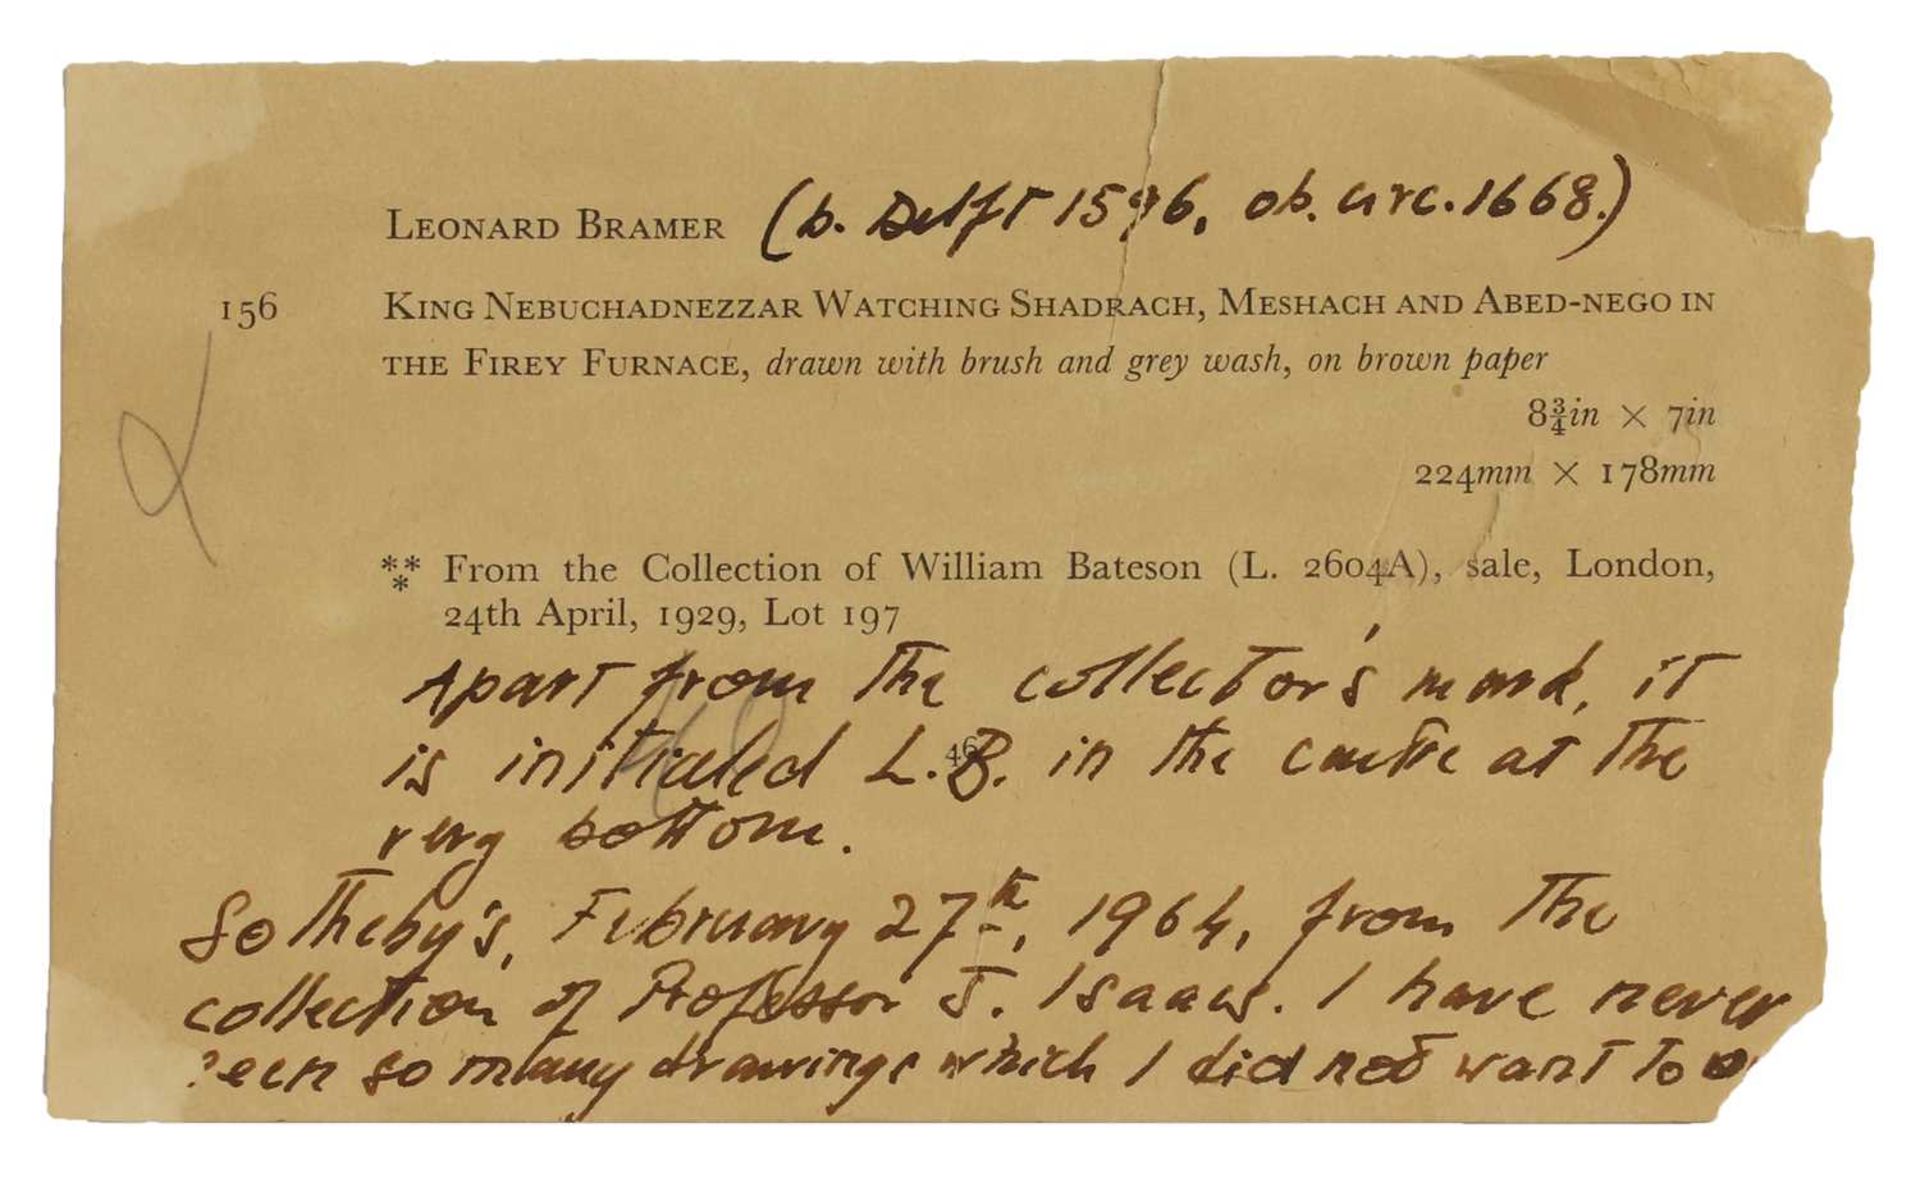 LEONARD BRAMER (b. Delft 1596, ob. circ. 1668.)
156 KING NEBUCHADNEZZAR WATCHING SHADRACH, MESHACH AND ABED-NEGO IN
THE FIREY FURNACE, drawn with brush and grey wash, on brown paper
8¾in × 7in
224mm × 178mm
⁂ From the Collection of William Bateson (L. 2604A), sale, London,
24th April, 1929, Lot 197
Apart from the collector's mark, it
is initialed L.B. in the centre at the
46
very bottom.
Sotheby's, February 27th, 1964, from the
collection of Professor J. Isaacs. I have never
seen so many drawings which I did not want to